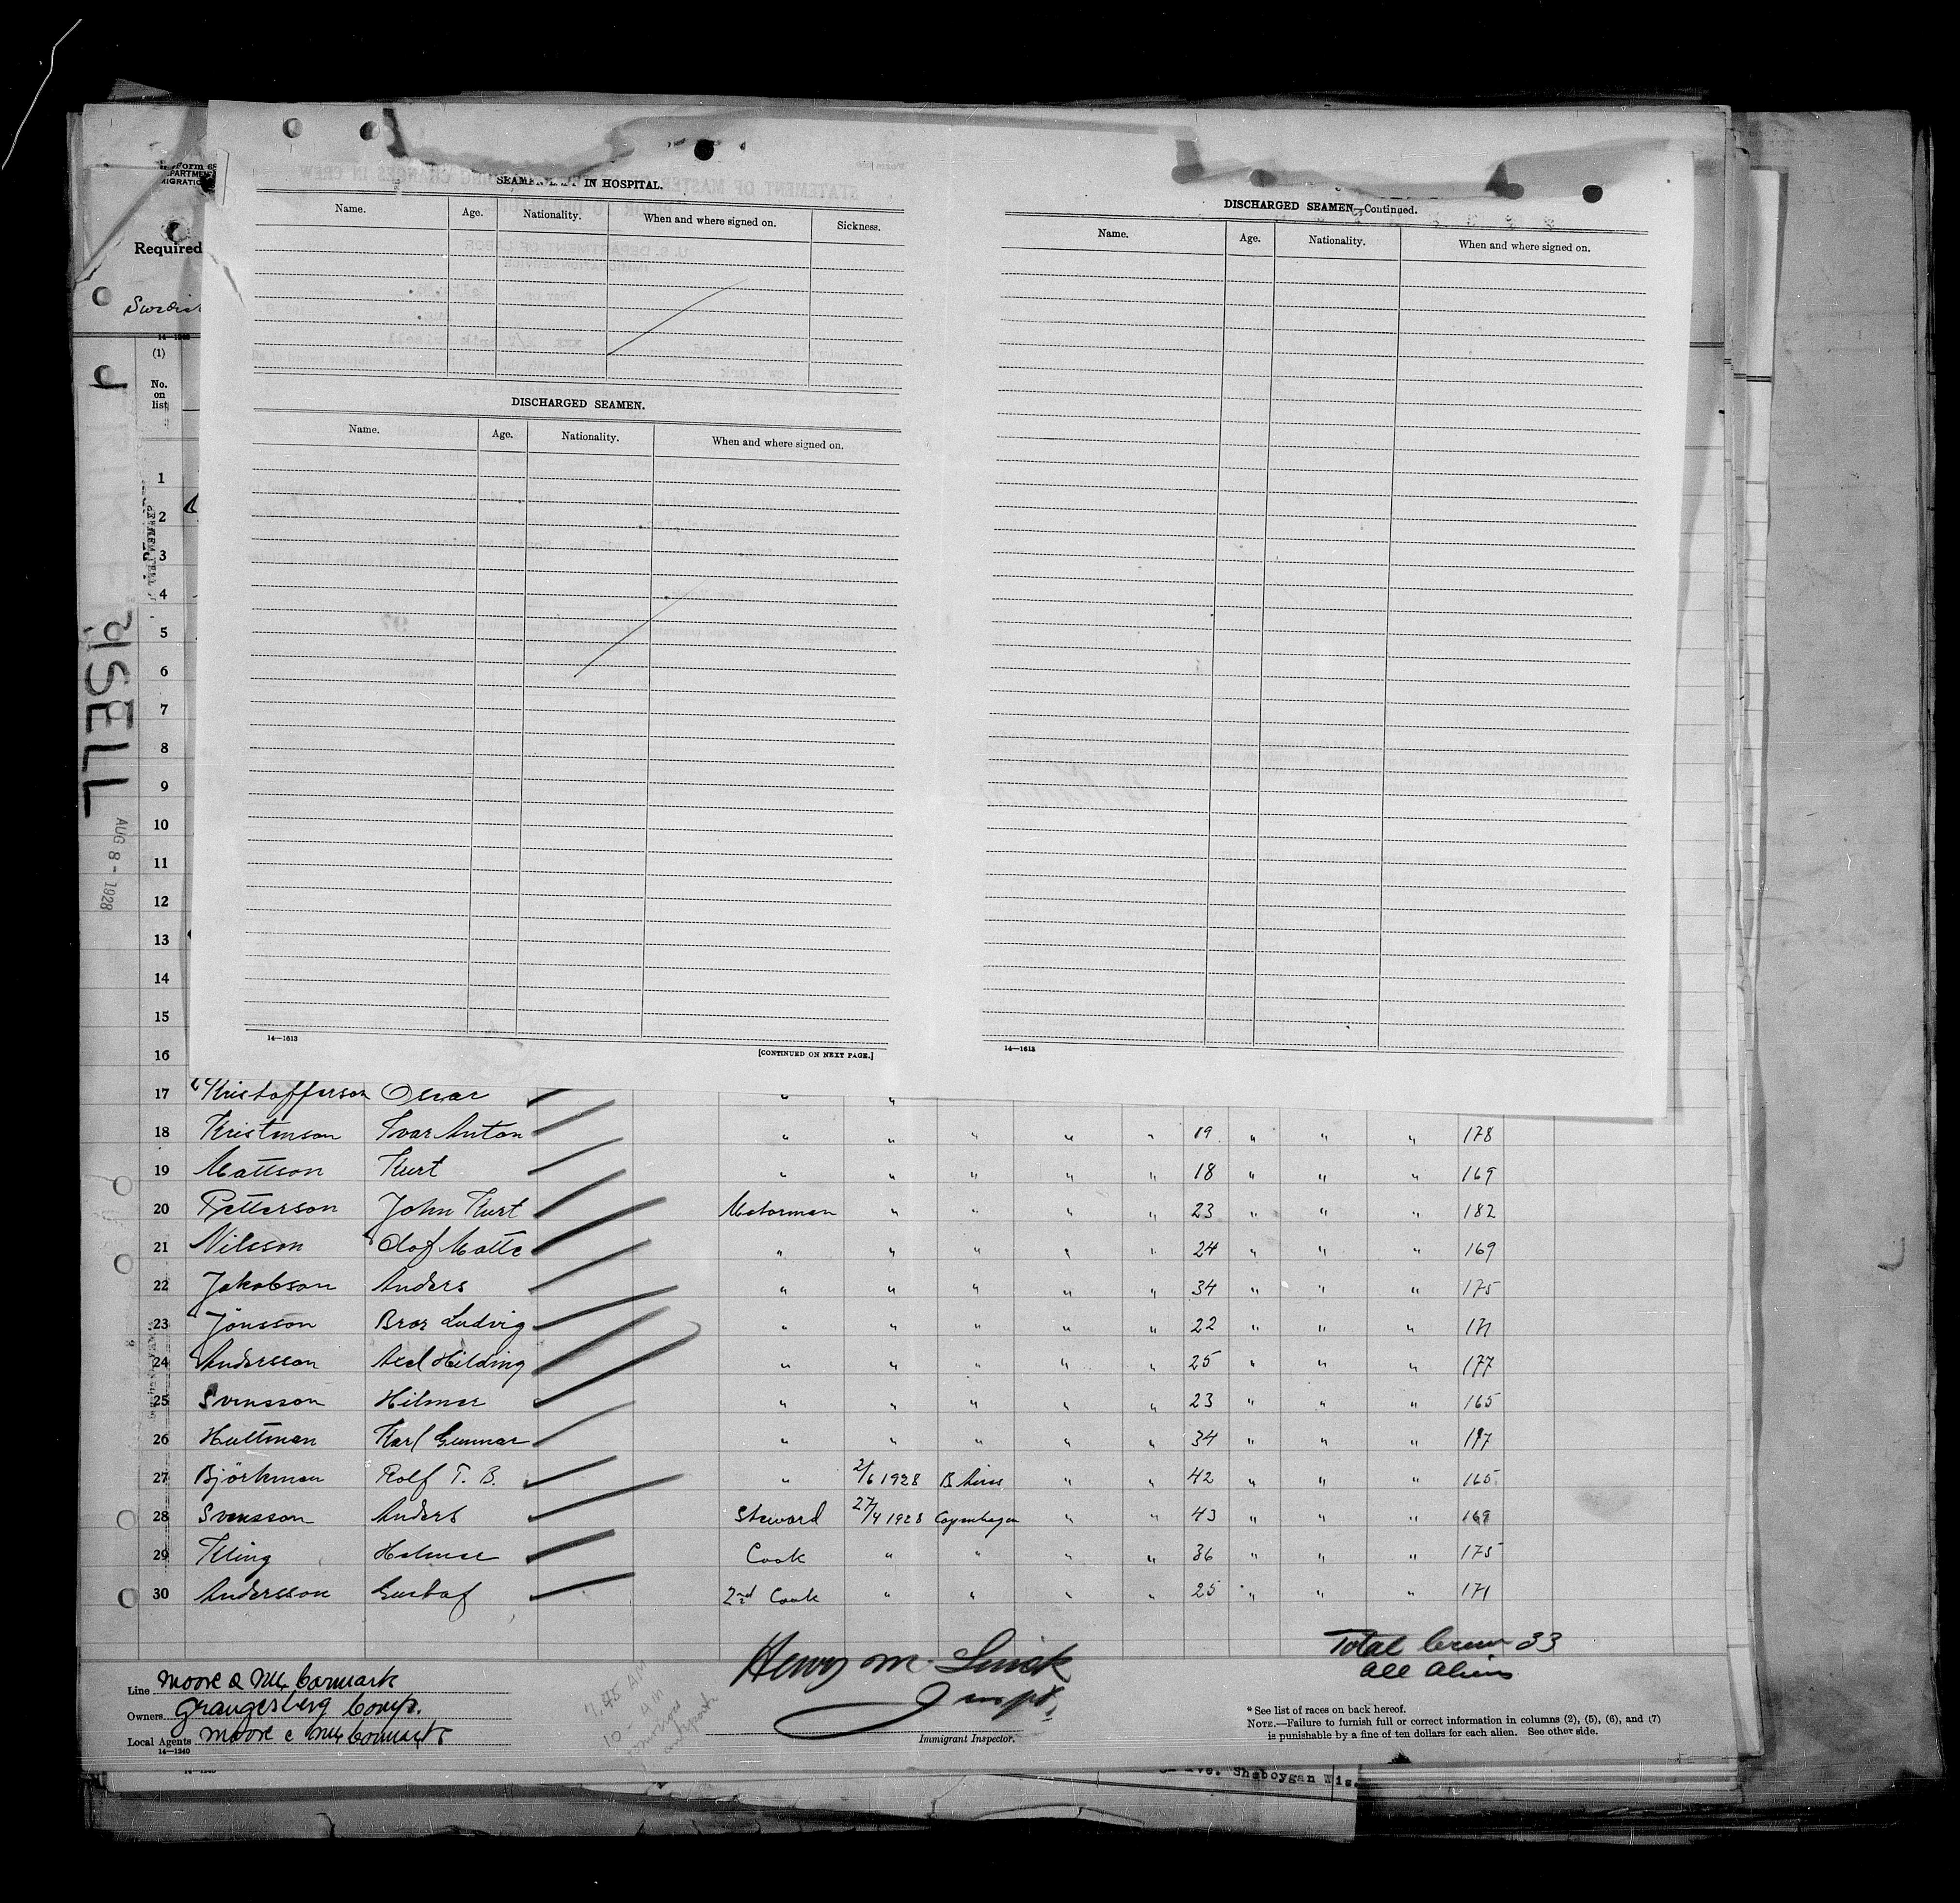 Form 68
Required
Swedis
14—1240
(1)
No. on list
SELL
AUG 8 - 1928
SEAMEN IN HOSPITAL.
Name. Age. Nationality. When and where signed on. Sickness.
DISCHARGED SEAMEN.
Name. Age. Nationality. When and where signed on.
14—1613
[CONTINUED ON NEXT PAGE.]
DISCHARGED SEAMEN—Continued.
Name. Age. Nationality. When and where signed on.
14—1613
1
2
3
4
5
6
7
8
9
10
11
12
13
14
15
16
17 Kristofferson Oscar " "
18 Kristinson Ivar Anton " " " " " 19 " " " 178
19 Mattson Kurt " " " " " 18 " " " 169
20 Petterson John Kurt Motorman " " " " 23 " " " 182
21 Nilsson Olof Matte " " " " " 24 " " " 169
22 Jakobson Anders " " " " " 34 " " " 175
23 Jönsson Bror Ludvig " " " " " 22 " " " 171
24 Andersson Axel Hilding " " " " " 25 " " " 177
25 Svensson Hilmer " " " " " 23 " " " 165
26 Hultman Karl Gunnar " " " " " 34 " " " 177
27 Björkman Rolf T. B. " 2/6 1928 B. Aires " " 42 " " " 165
28 Svensson Anders Steward 27/4 1928 Copenhagen " " 43 " " " 169
29 Kling Helmer Cook " " " " 36 " " " 175
30 Andersson Gustaf 2nd Cook " " " " 25 " " " 171
Total Crew 33
all aliens
Line Moore & McCormack
Owners Grangesberg Comp.
Local Agents Moore & McCormack
14—1240
7.45 AM
10 - AM
Henry M.
Inspt.
Immigrant Inspector.
* See list of races on back hereof.
NOTE.—Failure to furnish full or correct information in columns (2), (5), (6), and (7)
is punishable by a fine of ten dollars for each alien. See other side.
Ave. Sheboygan Wis.